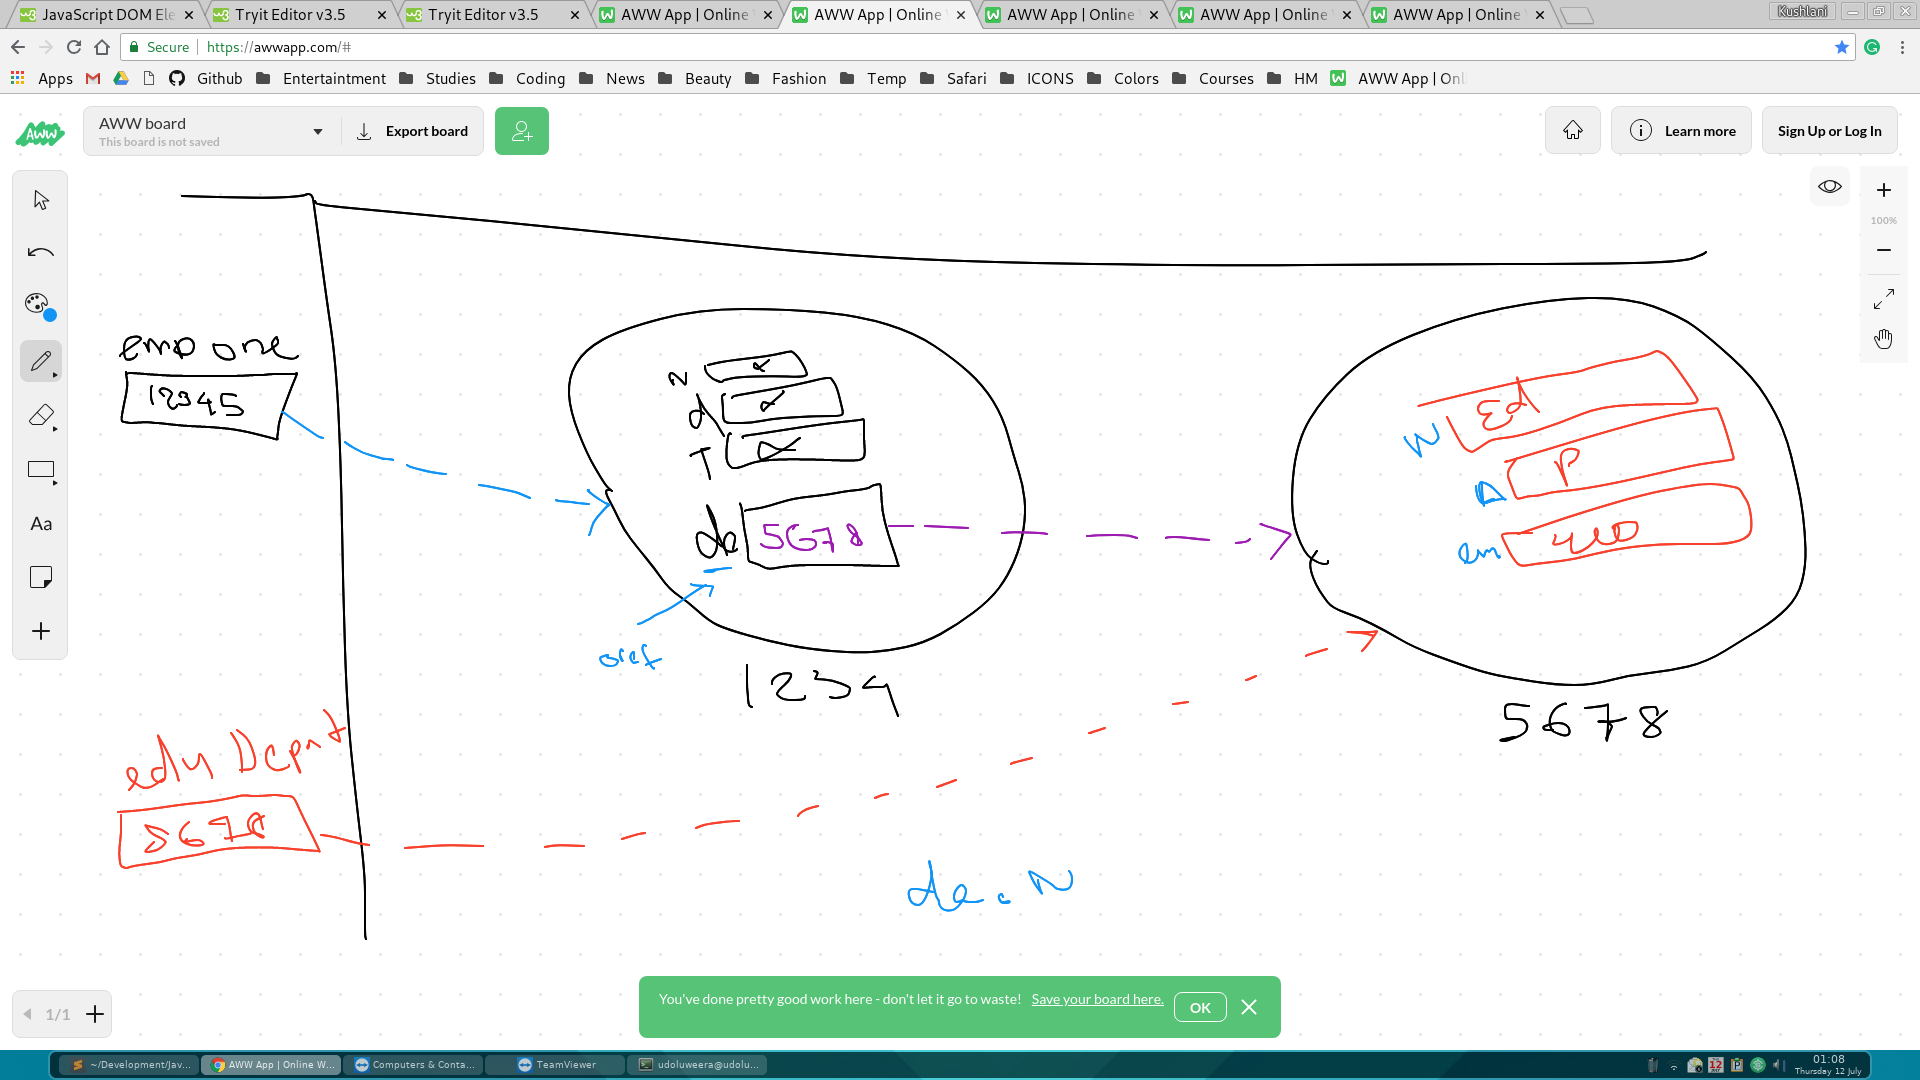 JavaScript DOM Ele
Tryit Editor v3.5
Tryit Editor v3.5
AWW App | Online
AWW App | Online
AWW App | Online
AWW App | Online
AWW App | Online
Kushlani
Secure https://awwapp.com/#
Apps Github Entertaintment Studies Coding News Beauty Fashion Temp Safari ICONS Colors Courses HM AWW App | Onl
AWW
AWW board
This board is not saved
Export board
Learn more
Sign Up or Log In
100%
Aa
emp one
12345
N
d
T
de 5678
oref
1234
W Ed
P
em 400
5678
edu Depnt
5678
de.N
You've done pretty good work here - don't let it go to waste! Save your board here. OK
1/1
~/Development/Jav...
AWW App | Online W...
Computers & Conta...
TeamViewer
udoluweera@udolu...
12
01:08
Thursday 12 July